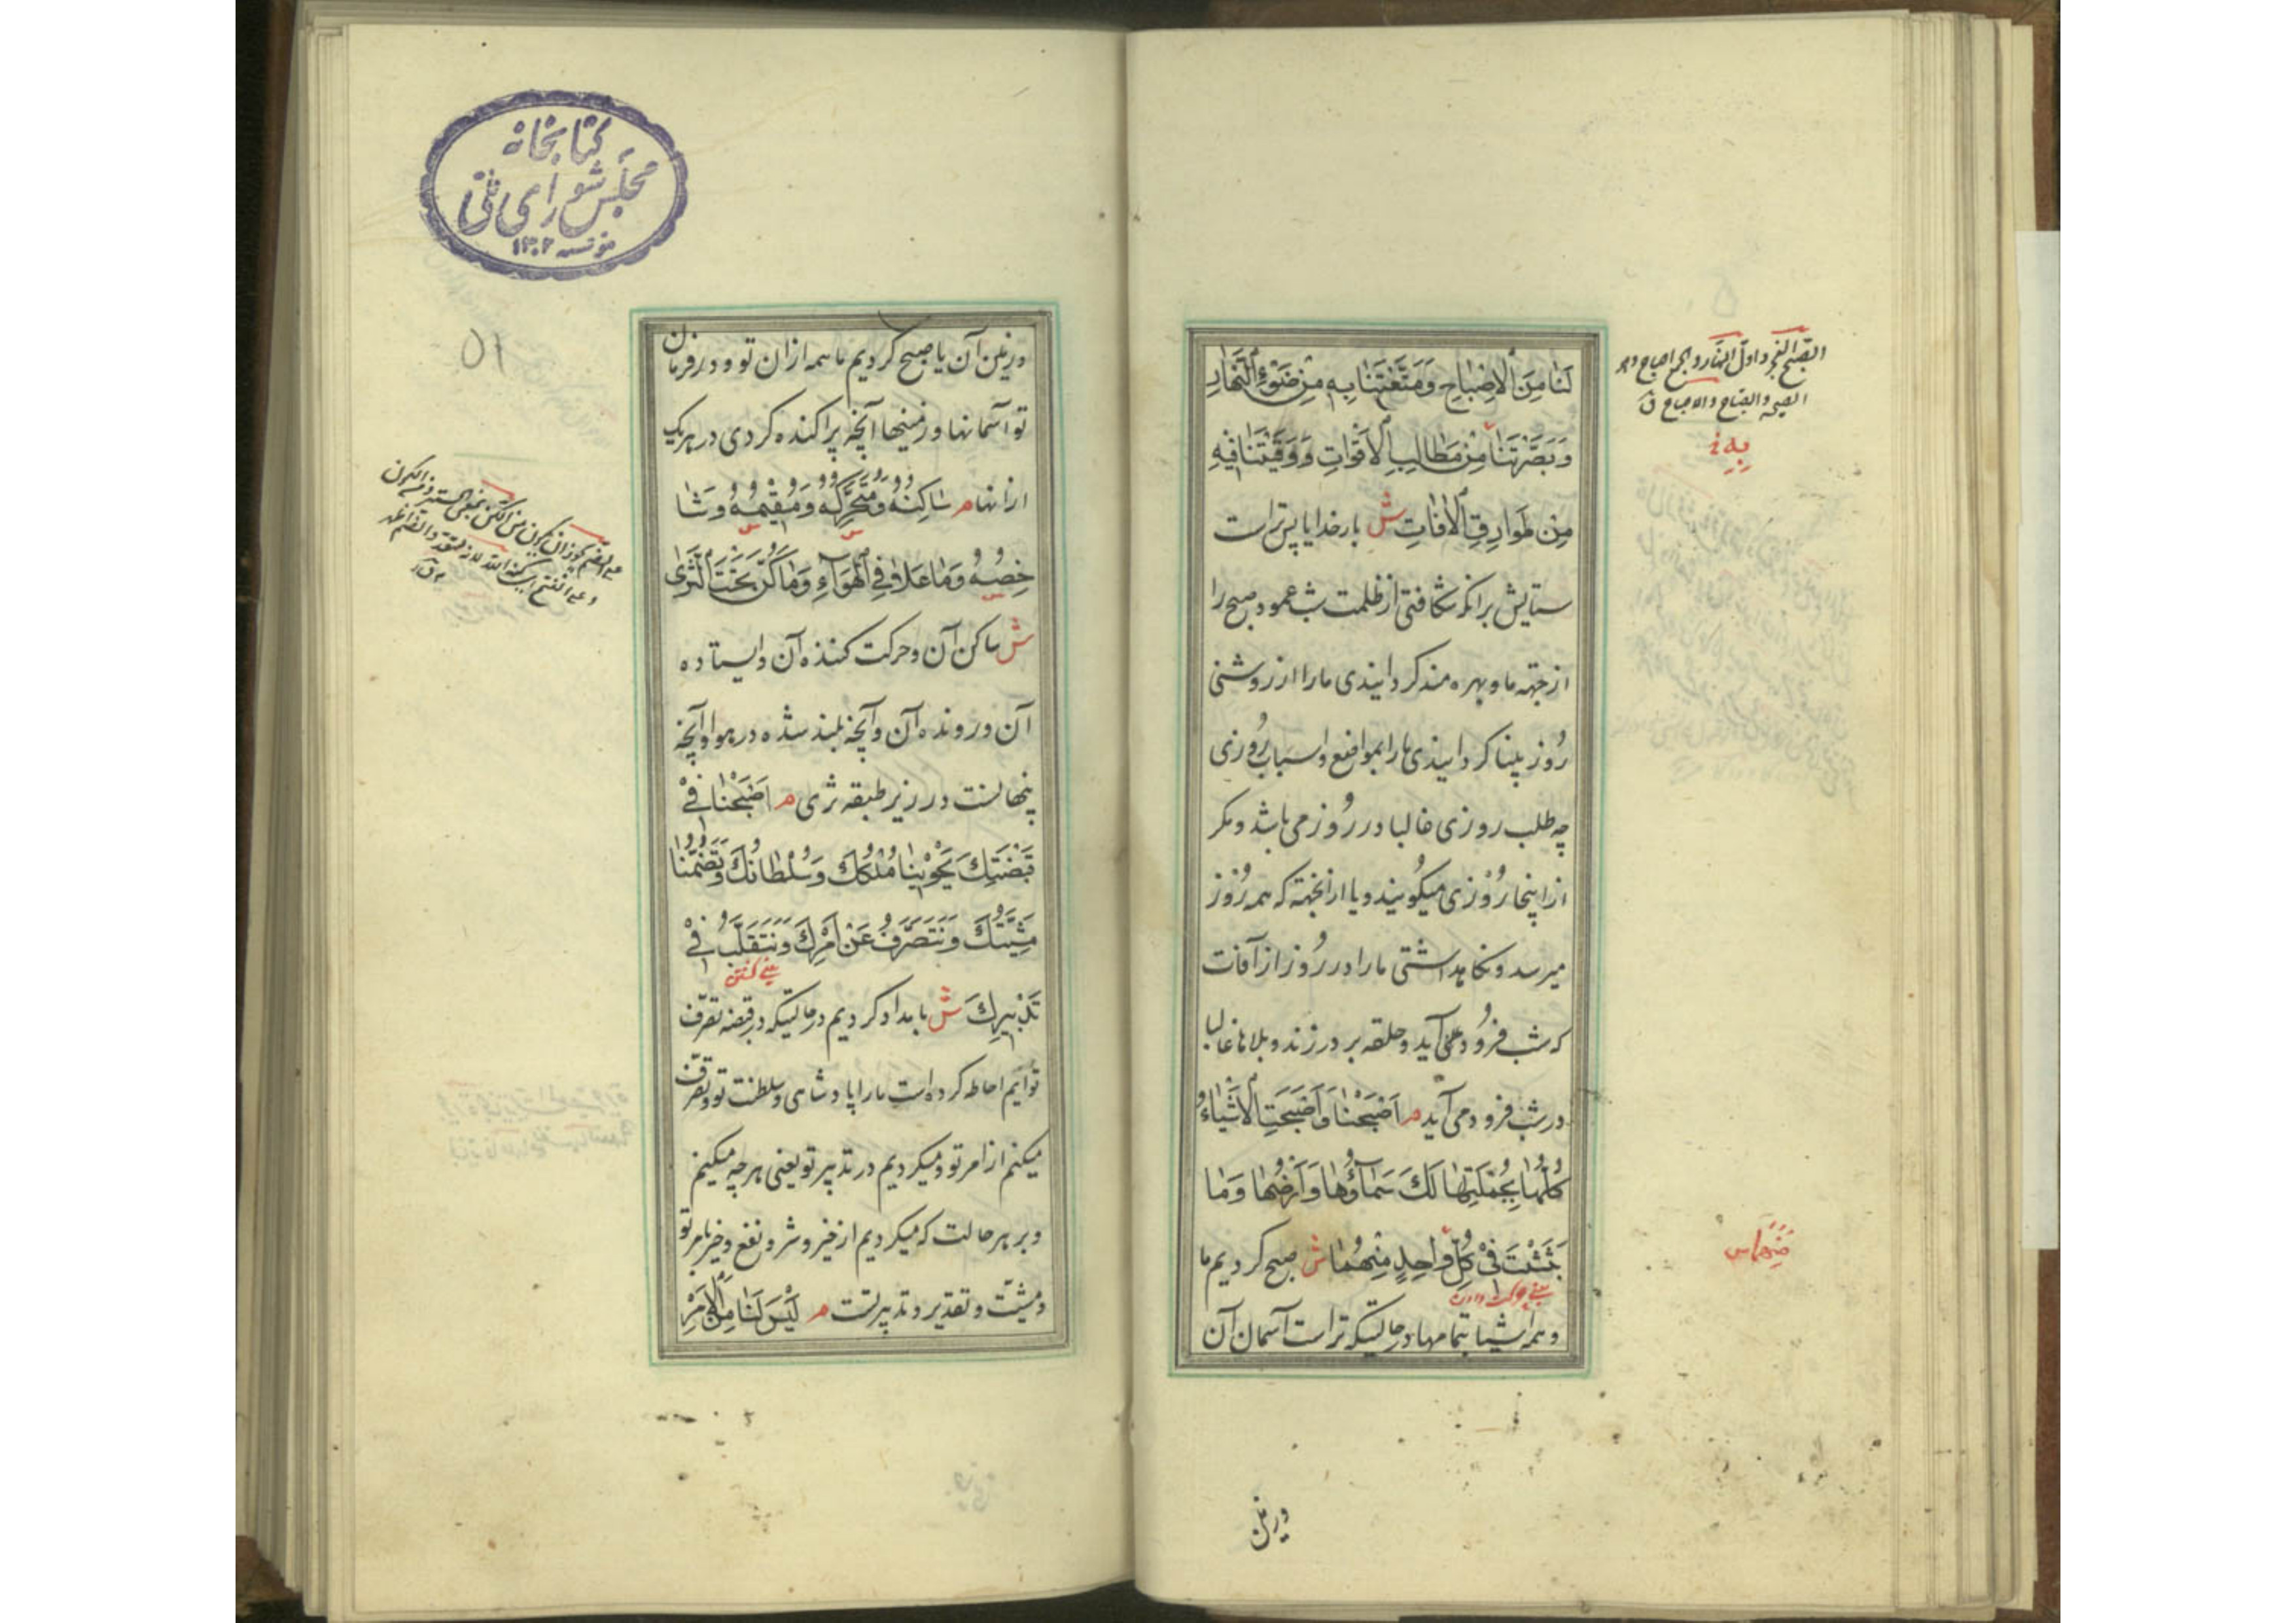 لَنَا مِنَ الْاِصْبَاحِ وَمَتَّعْتَنَا بِهِ مِنْ ضَوْءِ النَّهَارِ
وَبَصَّرْتَنَا مِنْ مَطَالِبِ الْاَقْوَاتِ وَوَقَيْتَنَا فِيهِ
مِنْ طَوَارِقِ الْاٰفَاتِ ش بار خدایا پس تراست
ستایش برانکه شکافتی از ظلمت شب عمود صبح را
از جهه ما و بهره مند کردانیدی ما را از روشنی
رُوز و بینا کردانیدی ما را بمواضع و اسباب رُوزی
چه طلب روزی غالبا در رُوز می باشد و مکر
از اینجا رُوْزی میکُویند و یا از انجهته که همه رُوز
میرسد و نکاهداشتی ما را در رُوز از آفات
که شب فرُود می آید و حلقه بر در زند و بلاها غالبا
در شب فرود می آید م اَصْبَحْنَا وَاَصْبَحَتِ الْاَشْيَاءُ
كُلُّهَا بِجُمْلَتِهَا لَكَ سَمَاؤُهَا وَاَرْضُهَا وَمَا
بَثَثْتَ فِىْ كُلِّ وَاحِدٍ مِنْهُمَا ش صبح کردیم ما
و همه اشیا بتمامها در حالتیکه تراست آسمان آن
الصبح الفجر و اول النهار و الجمع اصباح و هو
الصبیحه و الصباح و الاصباح ق
بِهِ
مِنْهَا س
ورزمین
کتابخانه
مجلس شورای ملی
مؤسسه ۱۳۰۲
۵۱
و زمین آن یا صبح کردیم ما همه از ان تو و در فرمان
تو آسمانها و زمینها آنچه پراکنده کردی در هر یک
از انها م سَاكِنُهُ وَمُتَحَرِّكُهُ وَمُقِيْمُهُ وَشَا
خِصُهُ وَمَا عَلَا فِي الْهَوَآءِ وَمَا كَنَّ تَحْتَ الثَّرٰى
ش ساکن آن و حرکت کننده آن و ایستاده
آن و رونده آن و آنچه بلند شده در هوا و آنچه
پنهانست در زیر طبقه ثری م اَصْبَحْنَا فِىْ
قَبْضَتِكَ يَحْوِيْنَا مُلْكُكَ وَسُلْطَانُكَ وَتَضُمُّنَا
مَشِيَّتُكَ وَنَتَصَرَّفُ عَنْ اَمْرِكَ وَنَتَقَلَّبُ فِىْ
تَدْبِيرِكَ ش بامداد کردیم در حالتیکه در قبضه تصرّف
توایم احاطه کرده است ما را پادشاهی و سلطنت تو و تصرّف
میکنم از امر تو و میکردیم در تدبیر تو یعنی هر چه میکنیم
و بر هر حالت که میکردیم از خیر و شر و نفع و
و مشیّت و تقدیر و تدبیر تست م لَيْسَ لَنَا مِنَ الْاَمْرِ